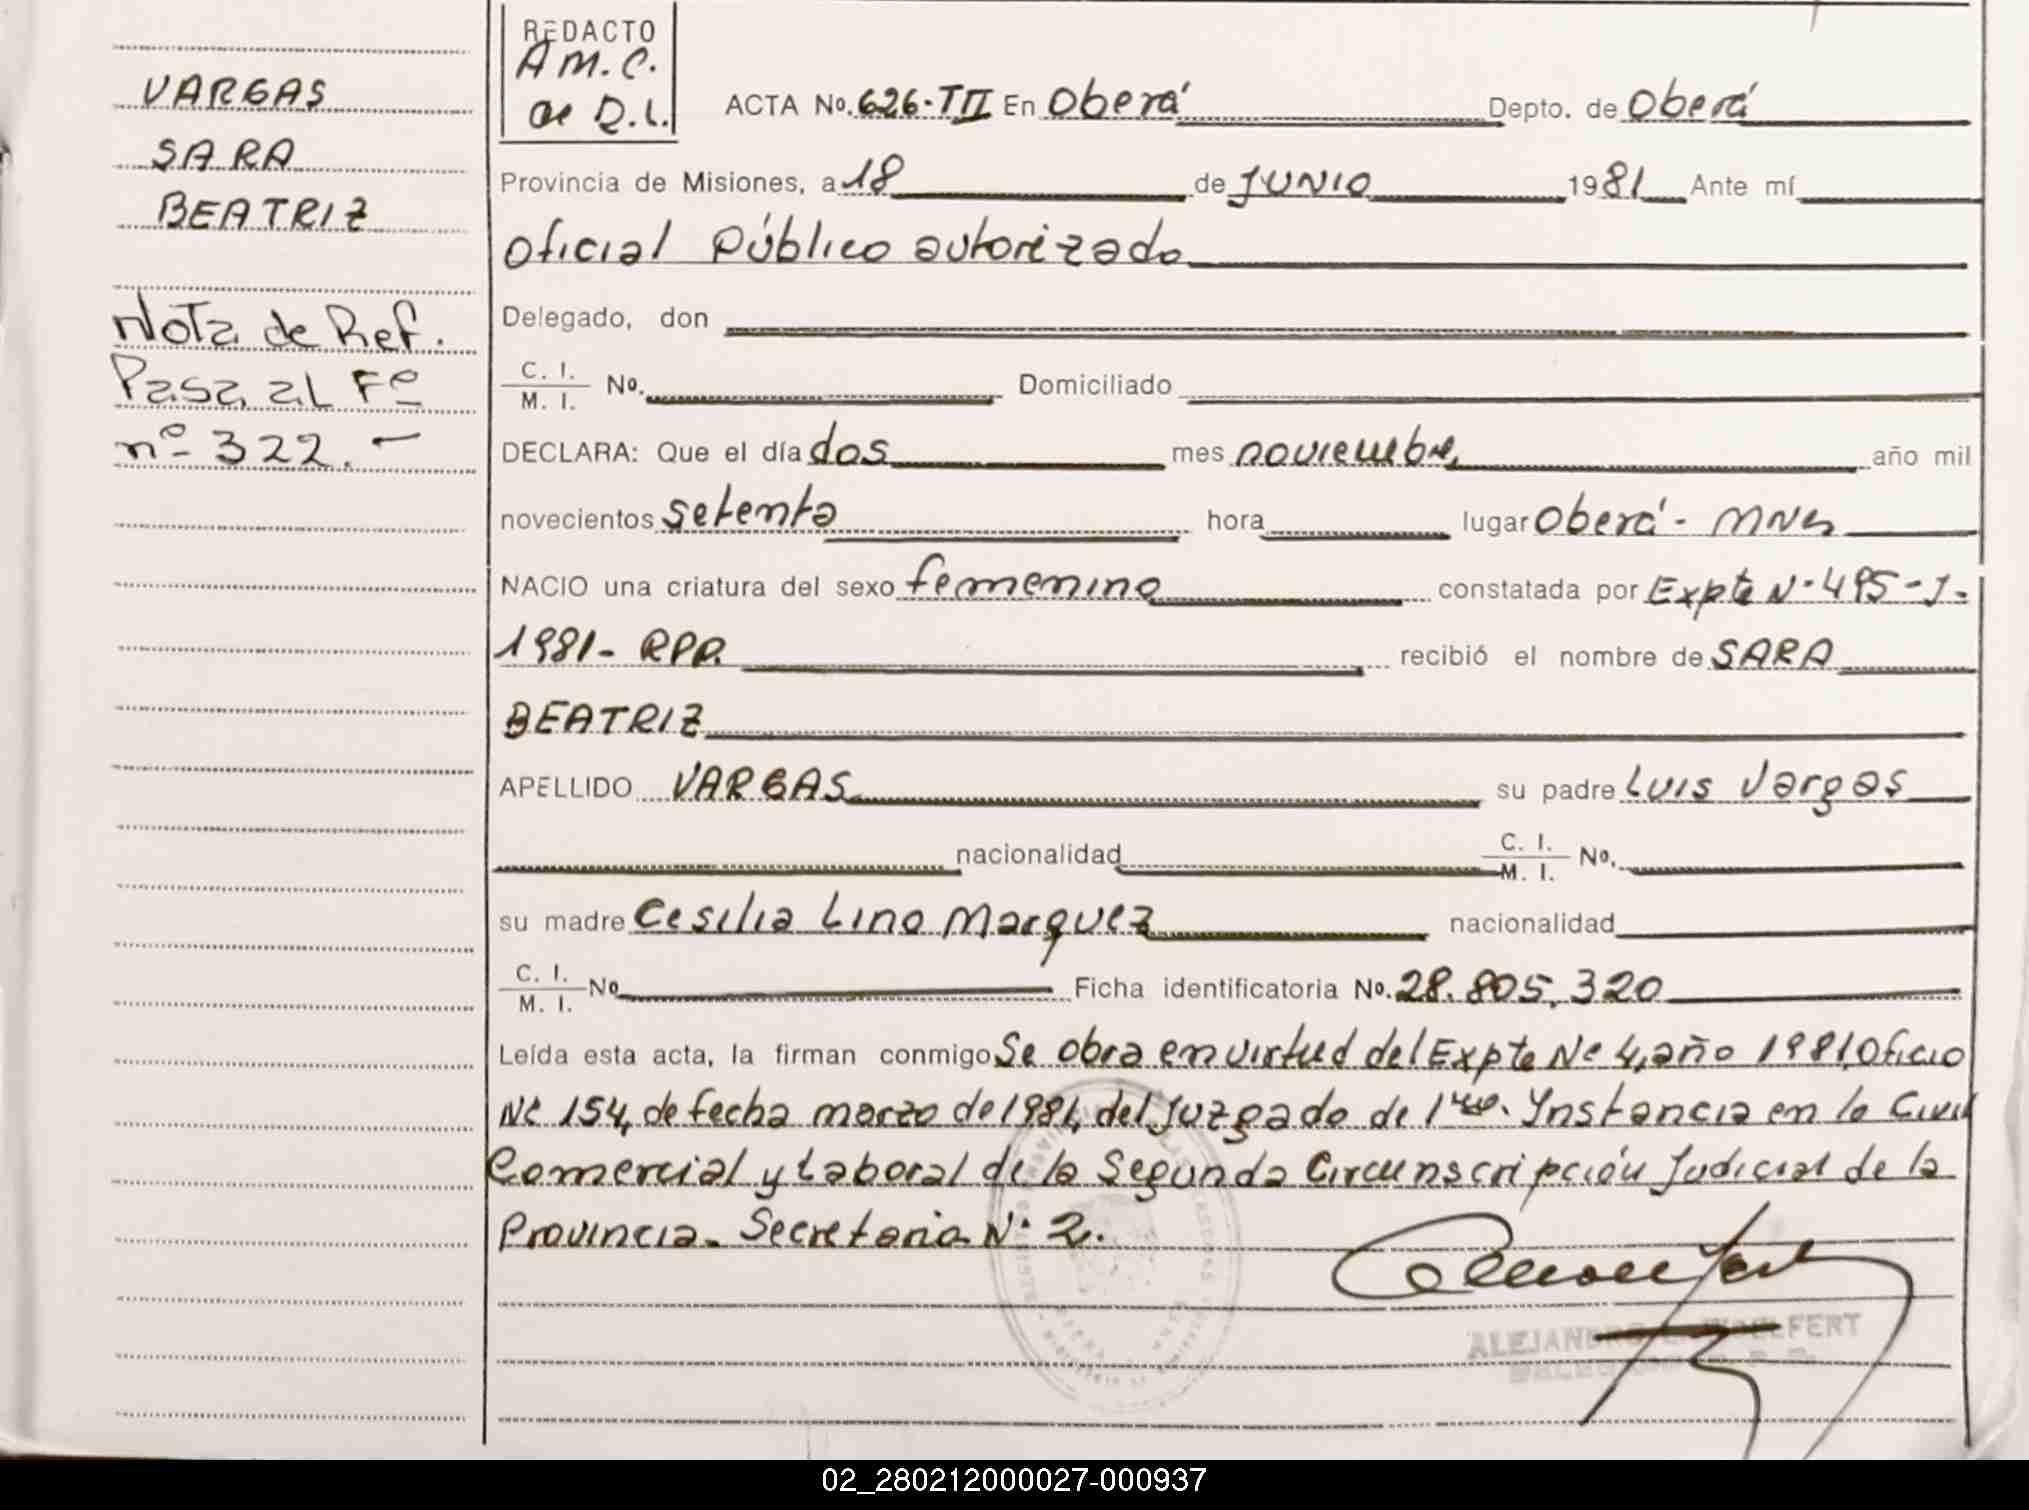 VARGAS
SARA
BEATRIZ
Nota de Ref.
Pasa al Fº
nº 322.-
REDACTO
A M. C.
de D.I.
ACTA No. 626-TII En Oberá Depto. de Oberá
Provincia de Misiones, a 18 de JUNIO 1981 Ante mí
Oficial Público autorizado
Delegado, don
C. I.
M. I. No. Domiciliado
DECLARA: Que el día dos mes noviembre, año mil
novecientos setenta hora lugar Oberá - Mnes
NACIO una criatura del sexo femenino constatada por Expte Nº 495-J-
1981- RPP. recibió el nombre de SARA
BEATRIZ
APELLIDO VARGAS su padre Luis Vargas
nacionalidad C. I.
M. I. No.
su madre Cesilia Lino Marquez nacionalidad
C. I.
M. I. No Ficha identificatoria No. 28.805.320
Leída esta acta, la firman conmigo Se obra en virtud del Expte Nº 4, año 1981, Oficio
Nº 154, de fecha marzo de 1981, del Juzgado de 1ra. Instancia en lo Civil
Comercial y Laboral de la Segunda Circunscripción Judicial de la
Provincia. Secretaria Nº 2.
02_280212000027-000937